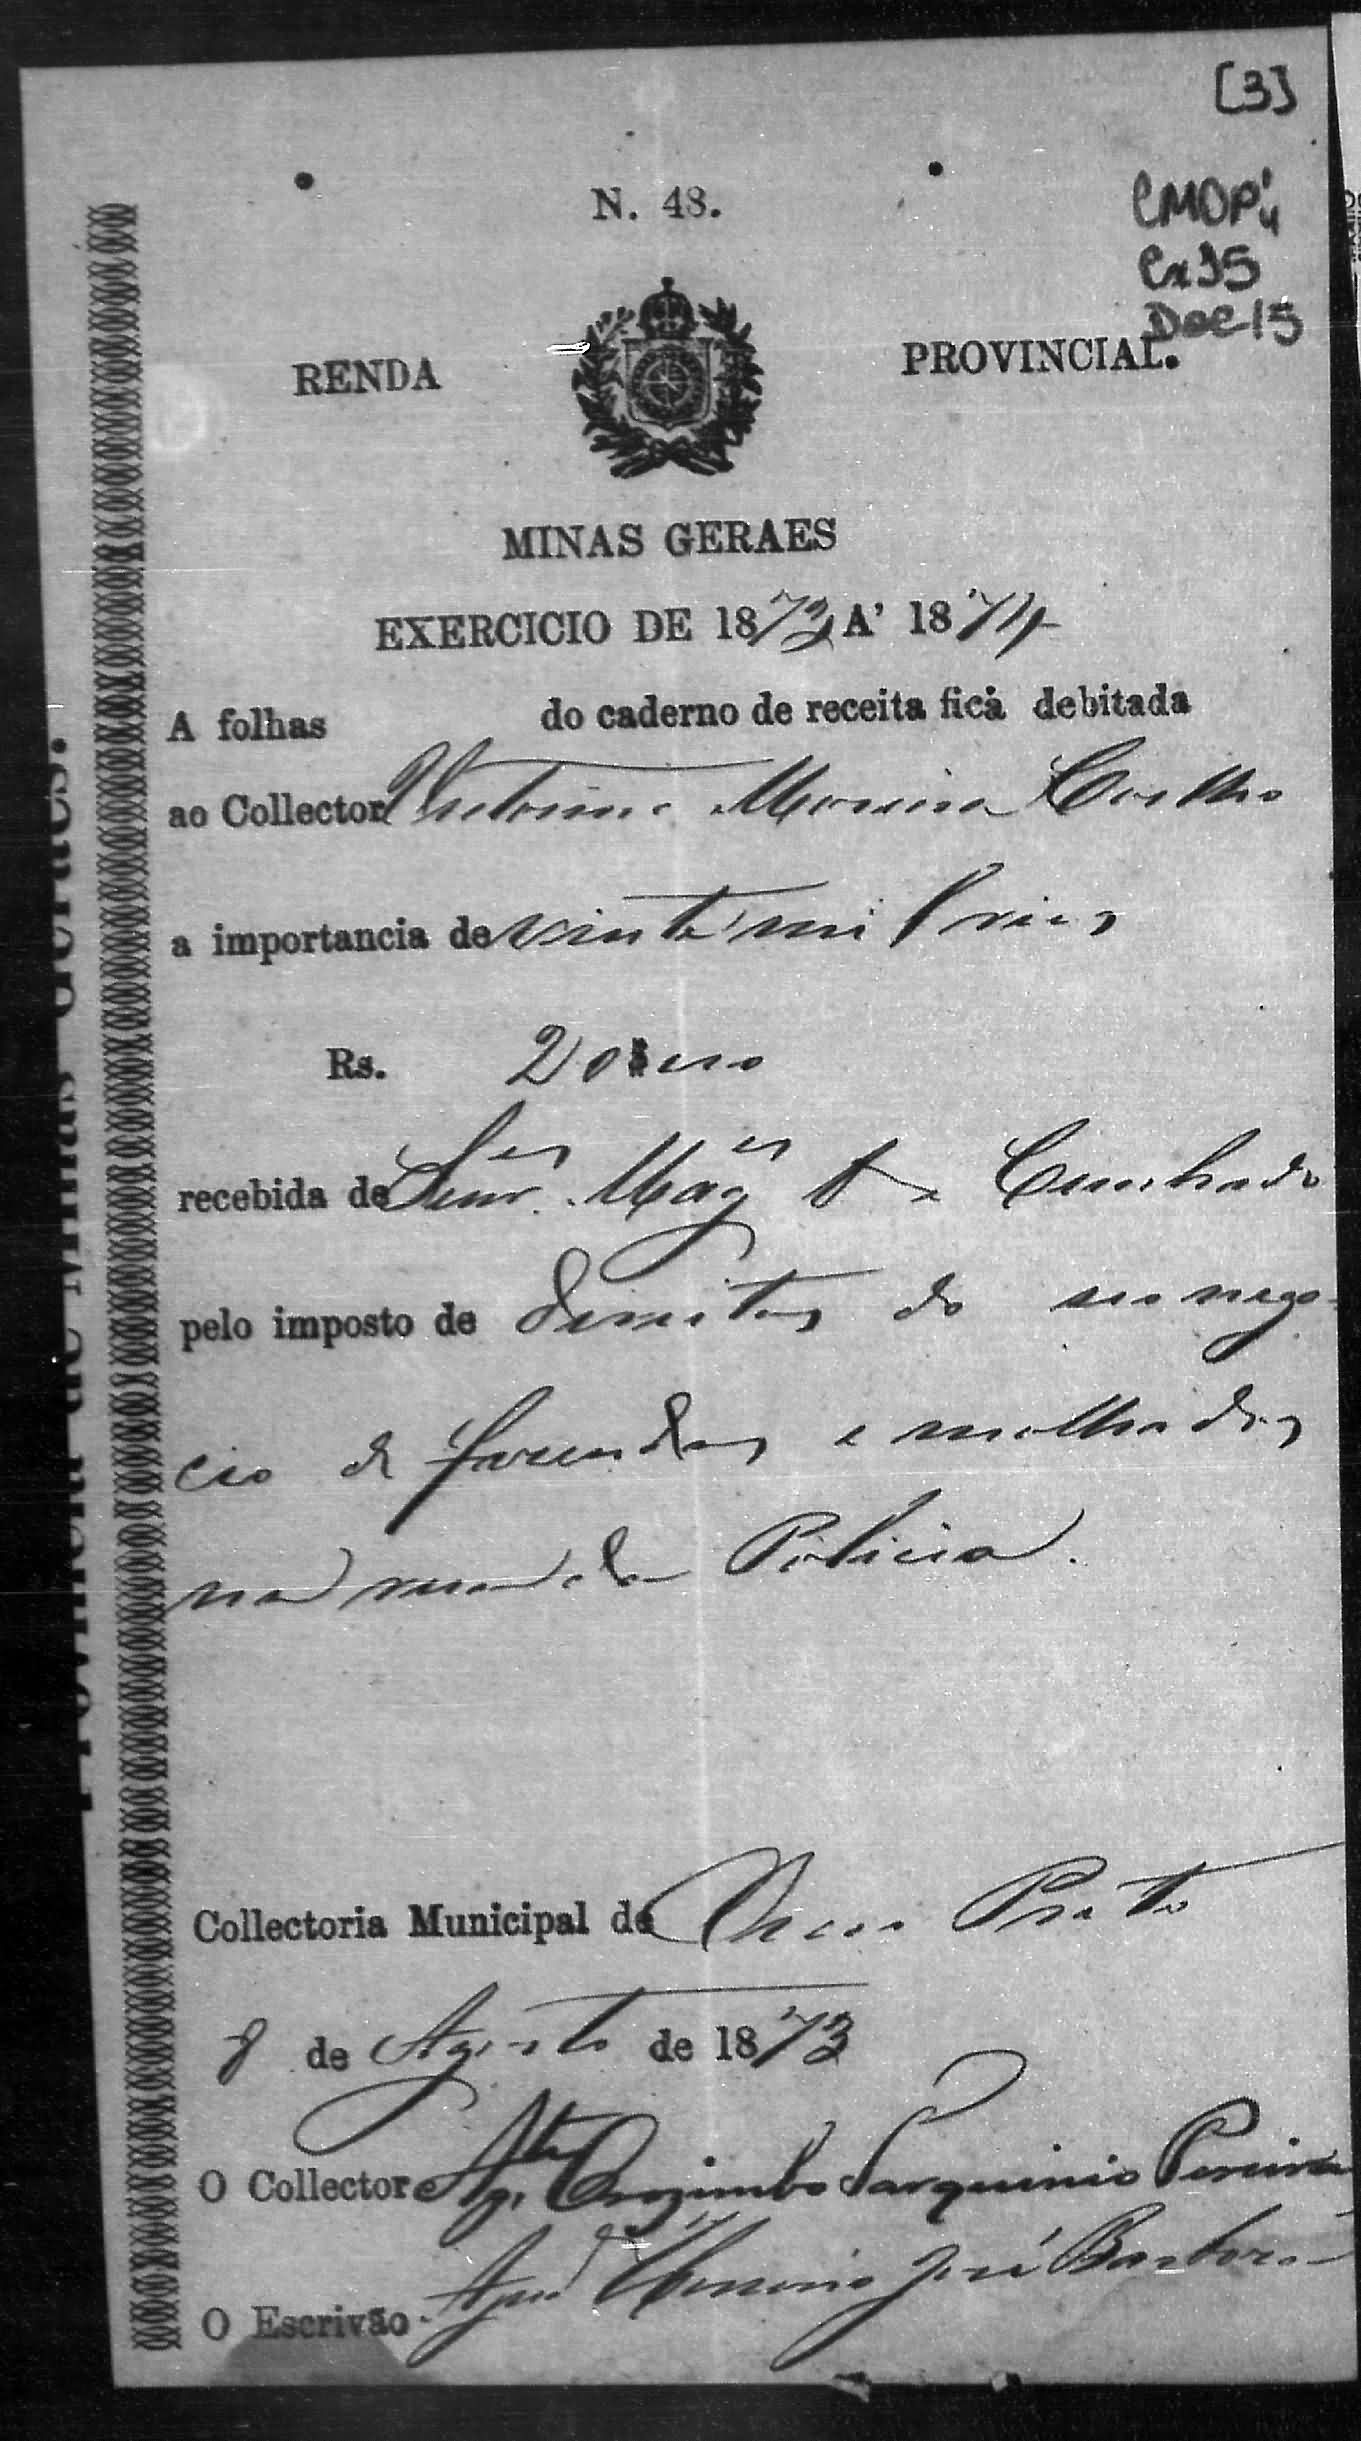 [3]
N. 48.
CMOP
Cx 95
Doc 15
RENDA PROVINCIAL.
MINAS GERAES
EXERCICIO DE 1873 A' 1874
A folhas do caderno de receita fica debitada
ao Collector Antonio Moreira Coelho
a importancia de vinte mil reis
Rs. 20$000
recebida de Cunhado
pelo imposto de direitos do seo nego-
cio de fasendas e molhados
na rua da Policia.
Collectoria Municipal de Ouro Preto
8 de Agosto de 1873
O Collector Orozimbo Tarquinio Pereira
O Escrivão José Barbosa
Provincia de Minas Geraes.